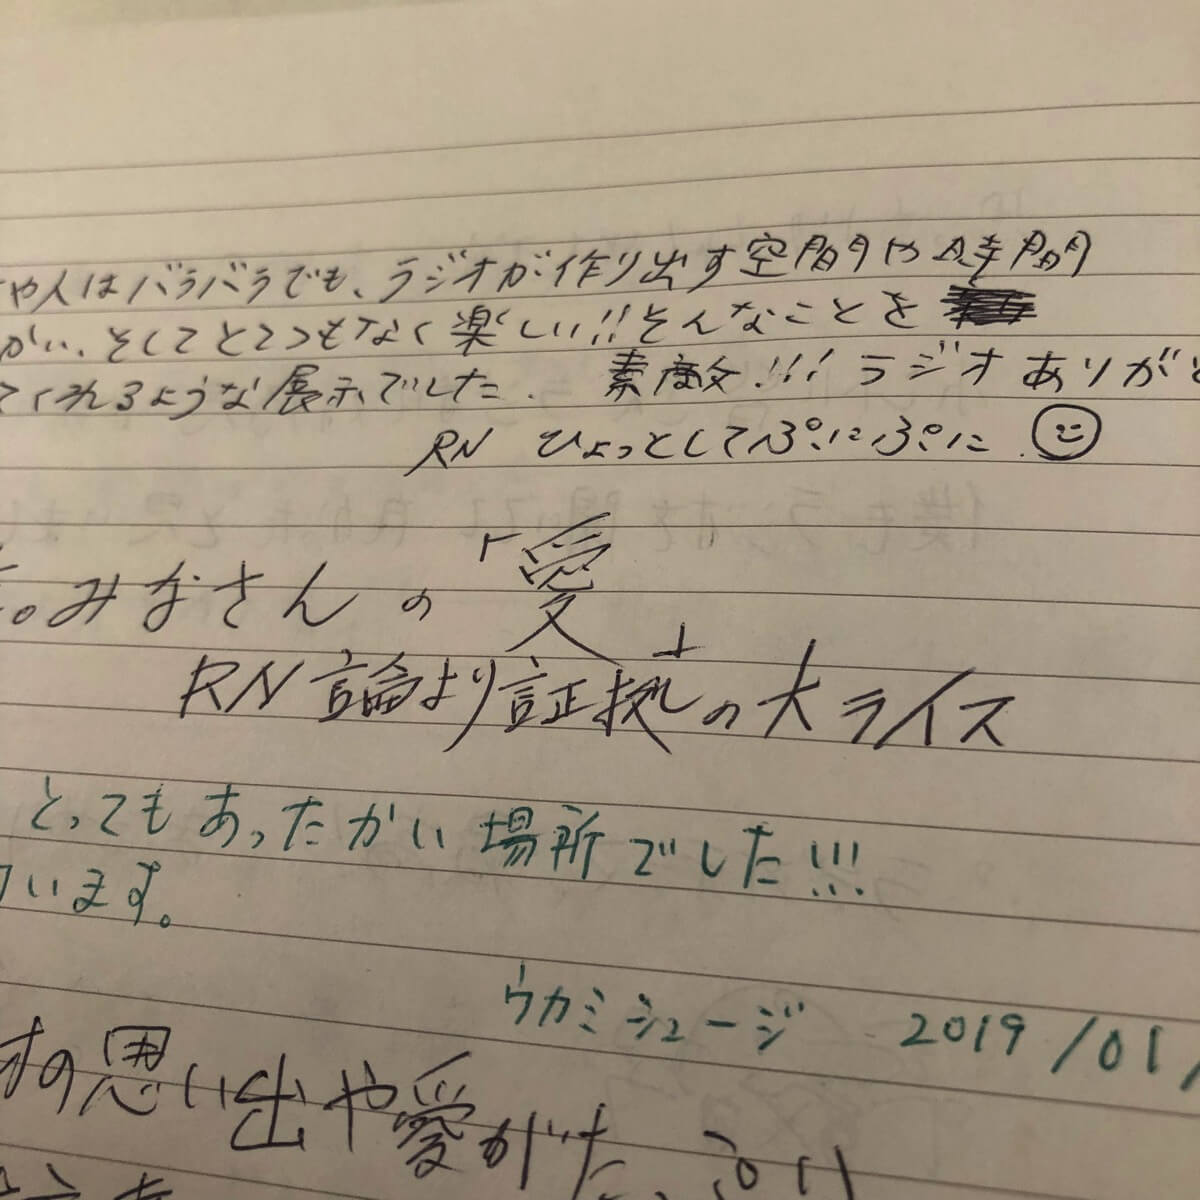 や人はバラバラでも、ラジオが作り出す空間や時間
かい、そしてとてつもなく楽しい!!そんなことを
てくれるような展示でした. 素敵!!! ラジオありがと
RN ひょっとしてぷにぷに
。みなさんの「愛」
RN 論より証拠の大ライス
とってもあったかい場所でした!!!
います。
ウカミシュージ 2019/01/
オの思い出や愛がた